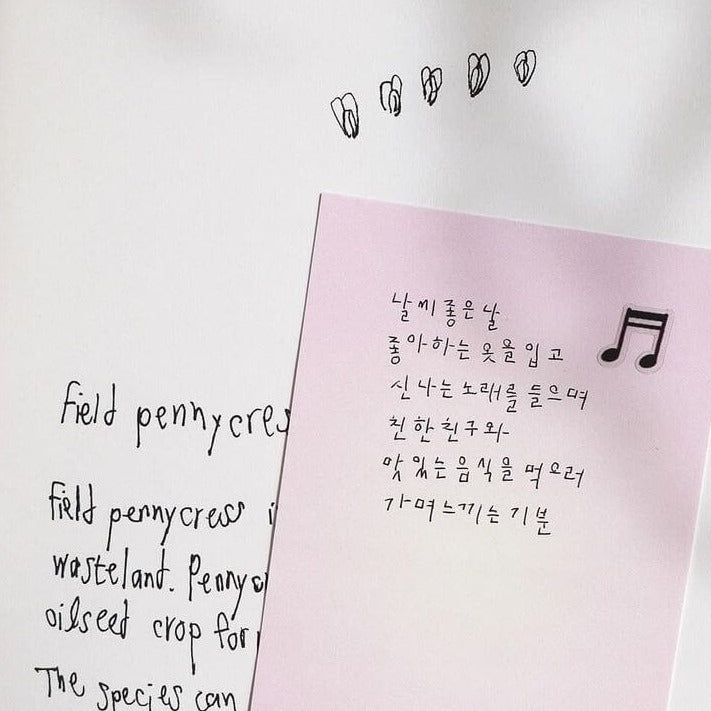 날씨좋은날
좋아하는 옷을 입고
신나는 노래를 들으며
친한친구와
맛있는 음식을 먹으러
가며느끼는 기분
Field pennycres
Field pennycress i
wasteland. Pennyc
oilseed crop for
The species can